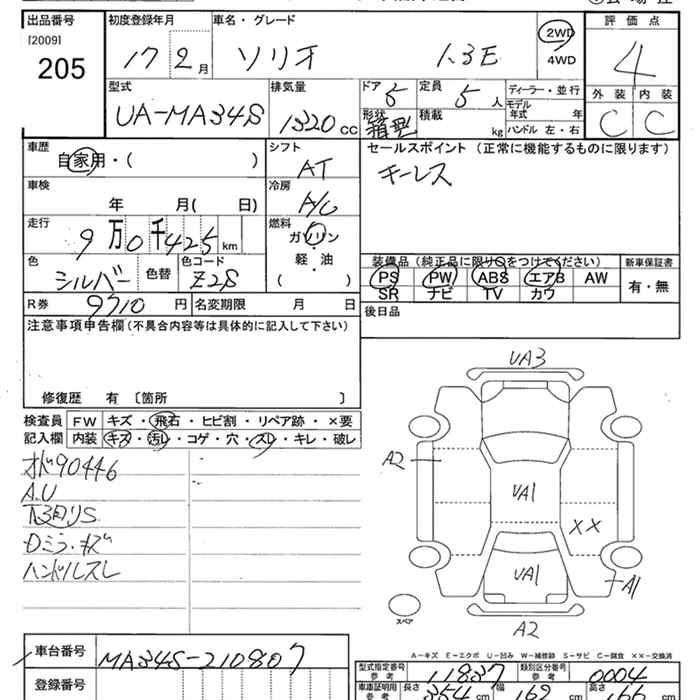 出品番号 初度登録年月 車名・グレード 2WD 評価点
[2009] 205 17 2月 ソリオ 1.3E 4WD 4
型式 排気量 ドア 5 定員 5人 ディーラー・並行 外装 内装
UA-MA34S 1320cc 形状 箱型 積載 kg モデル年式 年 ハンドル 左・右 C C
車歴 シフト セールスポイント(正常に機能するものに限ります)
自家用・( ) AT キーレス
車検 冷房
年 月( 日) A/C
走行 燃料
9万0千425km ガソリン
色 色コード 軽・油 装備品(純正品に限り○をつけてください) 新車保証書
シルバー 色替 Z2S ( ) PS PW ABS エアB AW 有・無
R券 9710円 名変期限 月 日 SR ナビ TV カワ
注意事項申告欄(不具合内容等は具体的に記入して下さい) 後日品
修復歴 有 〔箇所 〕
検査員 FW キズ・飛石・ヒビ割・リペア跡・×要
記入欄 内装 キズ・汚レ・コゲ・穴・スレ・キレ・破レ
90446
A.U
Dミラーキズ
ハンドルスレ
UA3
A2
UA1
××
UA1
A1
スペア
A2
A-キズ E-エクボ U-凹み W-補修跡 S-サビ C-腐食 ××-交換済
車台番号 MA34S-210807 型式指定番号 参考 11837 類別区分番号 参考 0004
登録番号 車庫証明用 参考 長さ 364cm 幅 162cm 高さ 166cm